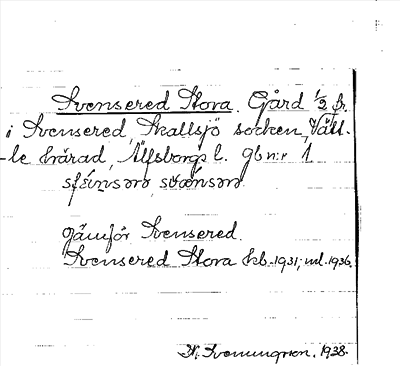 Svensered Stora. Gård 1/2 fr.
i Svensered, Skallsjö socken, Vätt-
le härad, Älfsborgs l. gbnr 1
svǽnsərə
jämför Svensered.
Svensered Stora kb. 1931; ml. 1936.
H. Svenningson. 1938.